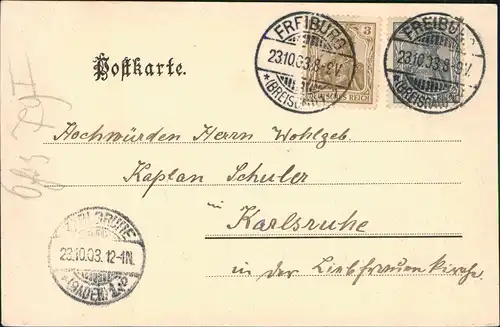 FREIBURG
23.10.03.8-9V.
*(BREISGAU)
3
DEUTSCHES REICH
FREIBURG
23.10.03.8-9V.
*(BREISGAU)
Postkarte.
Hochwürden Herrn Wohlgeb.
Kaplan Schuler
in
Karlsruhe
in der Liebfrauenkirche.
KARLSRUHE
23.10.03. 12-1N.
*(BADEN)